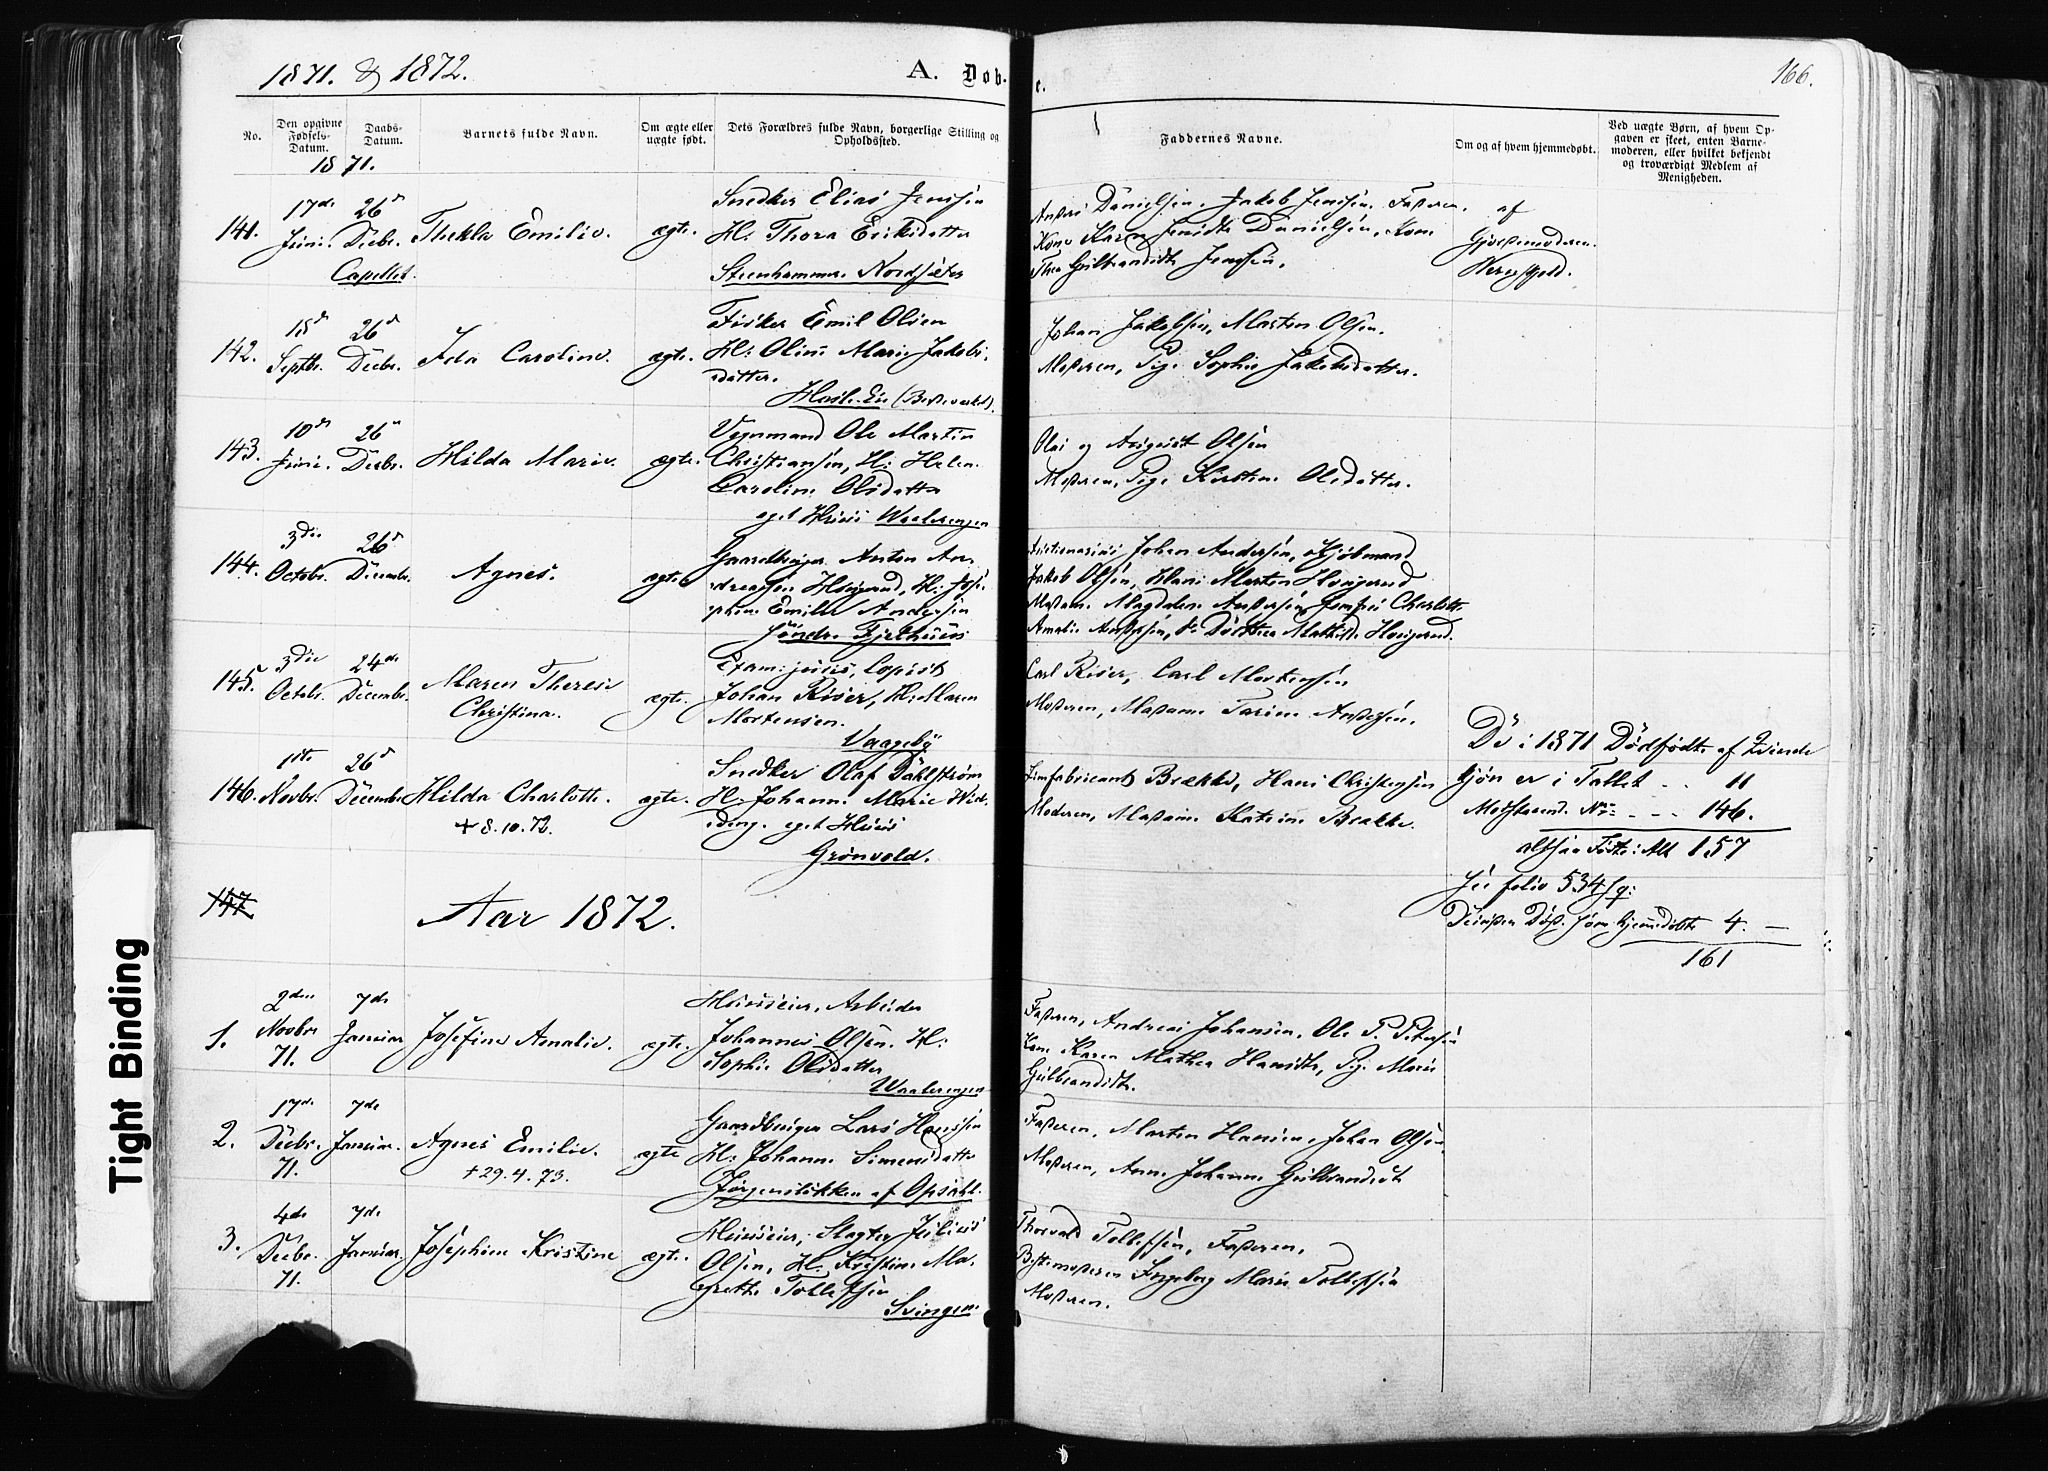 1871. & 1872.
A. Døb-
e.
166.
No.
Den opgivne Fødsels-Datum.
Daabs-Datum.
Barnets fulde Navn.
Om ægte eller uægte født.
Dets Forældres fulde Navn, borgerlige Stilling og Opholdssted.
Faddernes Navne.
Om og af hvem hjemmedøbt.
Ved uægte Børn, af hvem Opgaven er skeet, enten Barnemoderen, eller hvilket bekjendt og troværdigt Medlem af Menigheden.
1871.
141.
17de Juni.
26de Decbr.
Capellet.
Thekla Emilie.
ægte.
Snedker Elias Jenssen
H: Thora Eriksdatter
Steenhammer Nordsæter
Danielsen, Jakob Jenssen, Faderen,
Kone Karen Danielsen, Kone
Thea Gulbrandsdtr Jenssen,
af
Gjordemoderen
142.
15de Septbr.
26de Decbr.
Ida Caroline.
ægte.
Fisker Emil Olsen
H: Oline Marie Jakobs-
datter.
Johan Jakobsen, Marten Olsen.
Moderen, Pige Sophie Jakobsdatter.
143.
10de Juni.
26de Decbr.
Hilda Marie.
ægte.
Vognmand Ole Martin
Christiansen, H: Helen
Caroline Olsdatter
eget Huus Waalerengen
Olai og August Olsen
Moderen, Pige Kirstine Olsdatter.
144.
3die Octobr.
26de Decembr.
Agnes.
ægte
Gaardbruger Anton An-
dreasen H: Jose-
phine Emilie Andersen
Søndre Fjelhuus
Johan Andersen, Kjøbmand
Jakob Olsen, Hans Marten
Madam Magdalene Andersen Jomfru Charlotte
Amalie Andersen, Do Dorthea Mathilde
145.
3die Octobr.
24de Decembr.
Maren Therese
Christina.
ægte.
Exam: juris, Copist
Johan Riser, H: Maren
Mortensen.
Vaageby
Carl Riser, Carl Mortensen
Moderen, Madame Andersen.
146.
1ste Novbr.
26de Decembr.
Hilda Charlotte.
+ 8.10.72.
ægte.
Snedker Olaf Dahlstrøm
H: Johanne Marie Wid-
ding. eget Huus
Grønvold.
Limfabricant Brække, Hans Christensen
Moderen, Madame Katrine Brække.
De i 1871 Dødfødte af Qvinde
kjøn er i Tallet . . 11
Modstaaend. No: - - - 146.
altsaa Fødte i Alt 157
See folio 534 fg:
4. -
161
147
Aar 1872.
1.
2den Novbr 71.
7de Januar
Josefine Amalie.
ægte.
Huuseier, Arbeider
Johannes Olsen. H:
Sophie Olsdatter
Waalerengen
Faderen, Andreas Johansen, Ole P. Petersen
Kone Karen Mathea Hansdtr, Pige Marie
Gulbrandsdtr.
2.
17de Decbr. 71.
7de Januar.
Agnes Emilie.
+ 29.4.73.
ægte
Gaardbruger Lars Hanssen
H: Johanne Simensdatter
Jørgensløkken af Opsahl.
Faderen, Marten Hansen, Johan Olsen
Moderen, Anne Johanne Gulbrandsdt
3.
4de Decbr. 71.
7de Januar.
Joséphine Kristine
ægte.
Huuseier, Slagter Julius
Olsen, H: Kristine Ma-
grethe Tollefsen
Svingen.
Thorvald Tollefsen, Faderen,
Bestemoderen Ingeborg Marie Tollefsen
Moderen.
Tight Binding